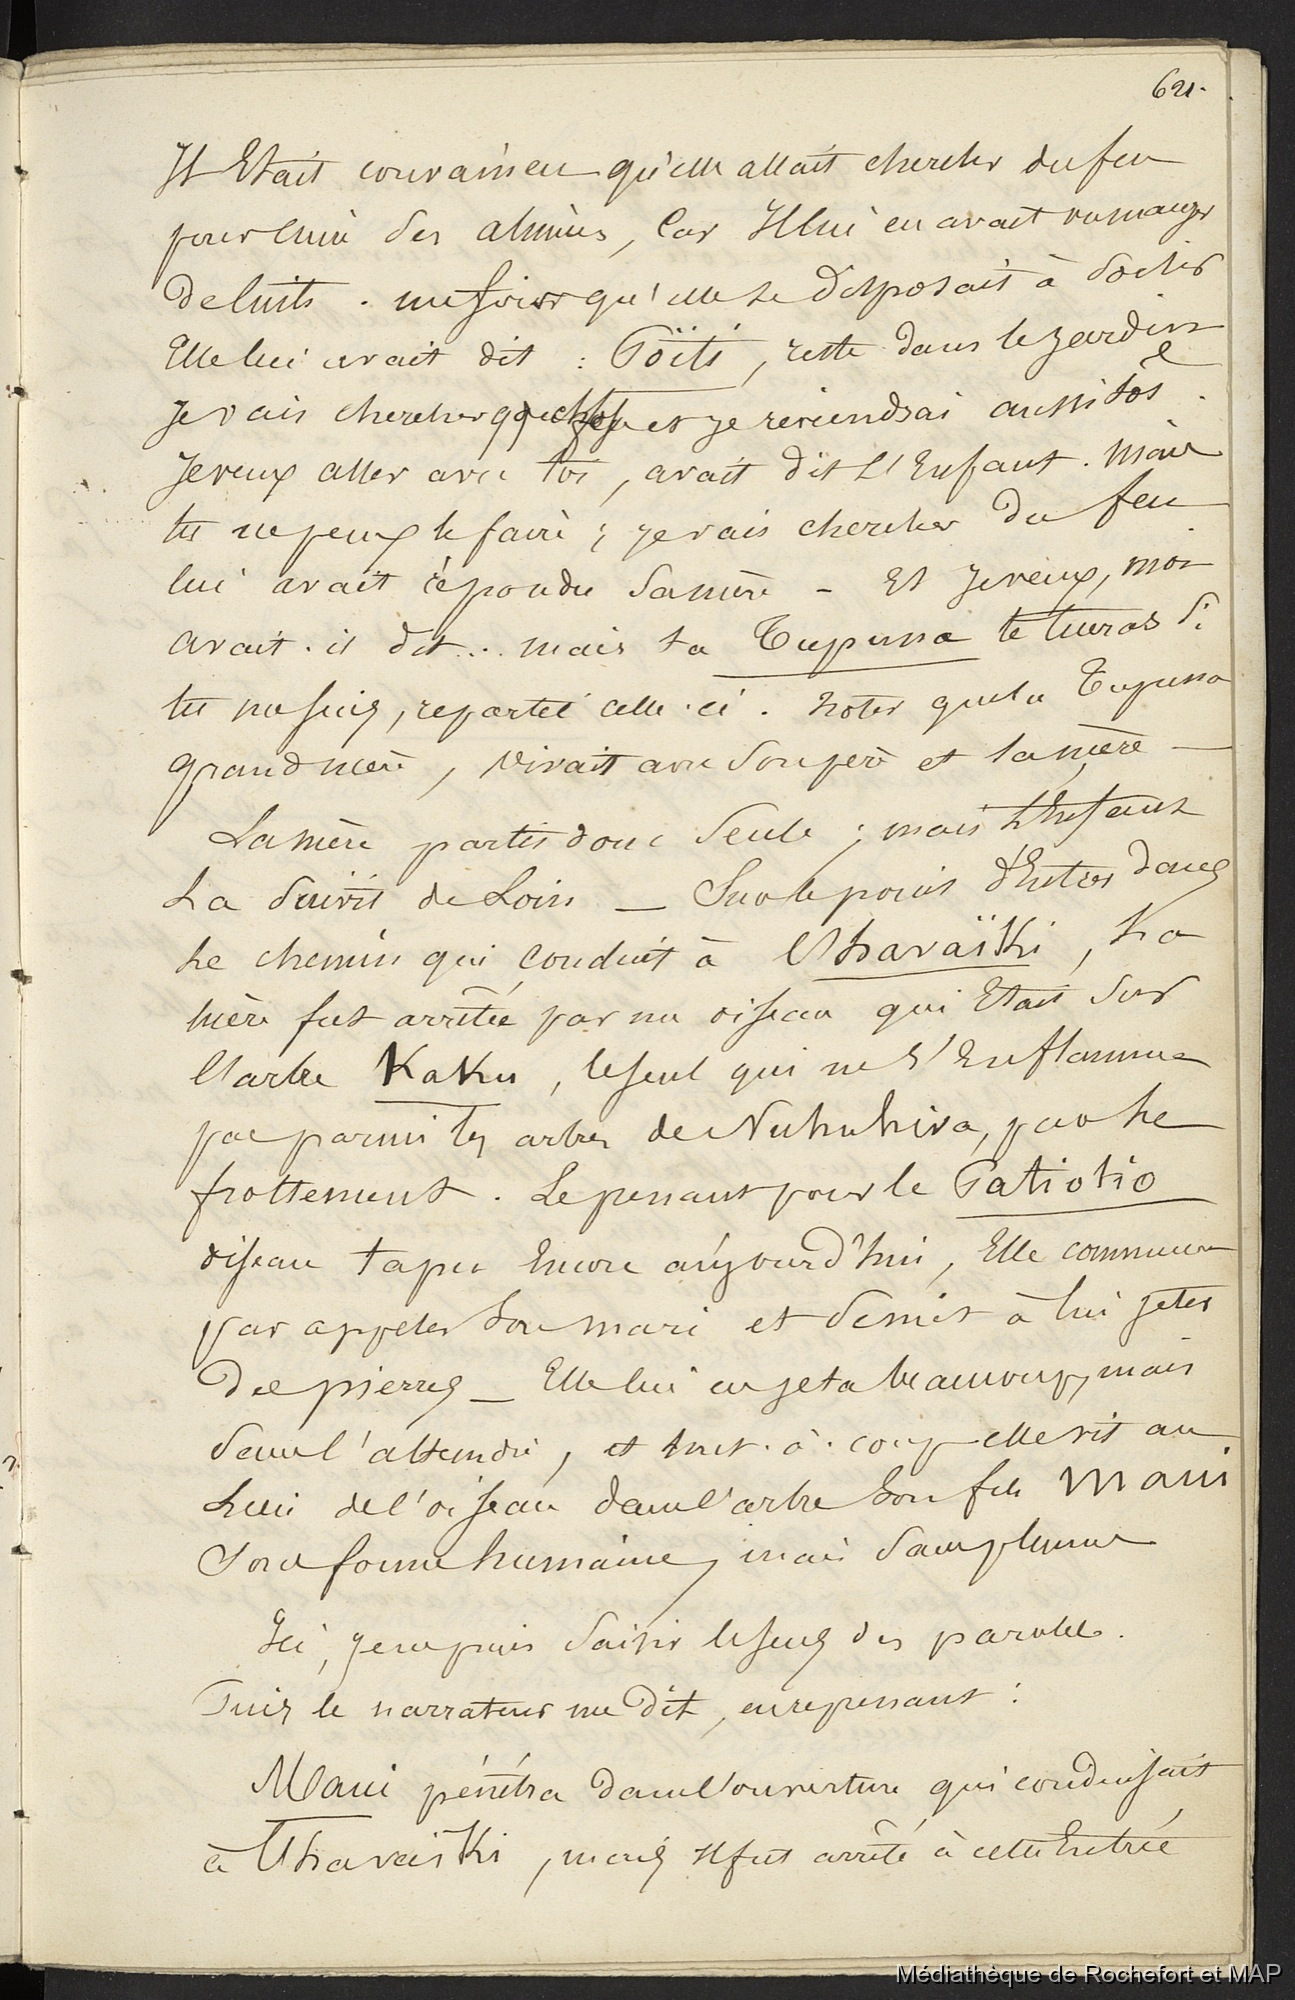 621.
Il Etait convaincu qu'elle allait chercher du feu
pour cuire des aliments, Car Il lui en avait vu manger
de cuits. une fois qu'elle se disposait à sortir
Elle lui avait dit : Poïti, reste dans le jardin
Je vais chercher et je reviendrai aussitôt.
Je veux aller avec toi, avait dit L'Enfant. mais
tu ne peux le faire ; je vais chercher du feu
lui avait répondu sa mère - Et je veux, moi
avait-il dit... mais ta Tupuna te tuera Si
tu me suis, repartit celle-ci. Notez que la Tupuna
grand mère, vivait avec son père et sa mère —
La mère partit donc seule ; mais L'Enfant
La suivit de Loin — Sur le point d'Entrer dans
Le chemin qui conduit à l'Havaïki, La
mère fut arrêtée par un oiseau qui Etait sur
l'arbre Kaku, le seul qui ne s'Enflamme
pas parmi les arbres de Nukuhiva, par le
frottement. Le prenant pour le Patiotio
oiseau tapu Encore aujourd'hui, Elle commença
par appeler son mari et se mit à lui jeter
des pierres — Elle lui en jeta beaucoup, mais
sans l'atteindre, et tout-à-coup elle vit au
Lieu de l'oiseau dans l'arbre son fils Maui
Sous forme humaine, mais sans plumes
Ici, je ne puis saisir le sens des paroles.
Puis le narrateur me dit, en reprenant :
Maui pénétra dans l'ouverture qui conduisait
à l'Havaiki, mais Il fut arrêté à cette Entrée
Médiathèque de Rochefort et MAP